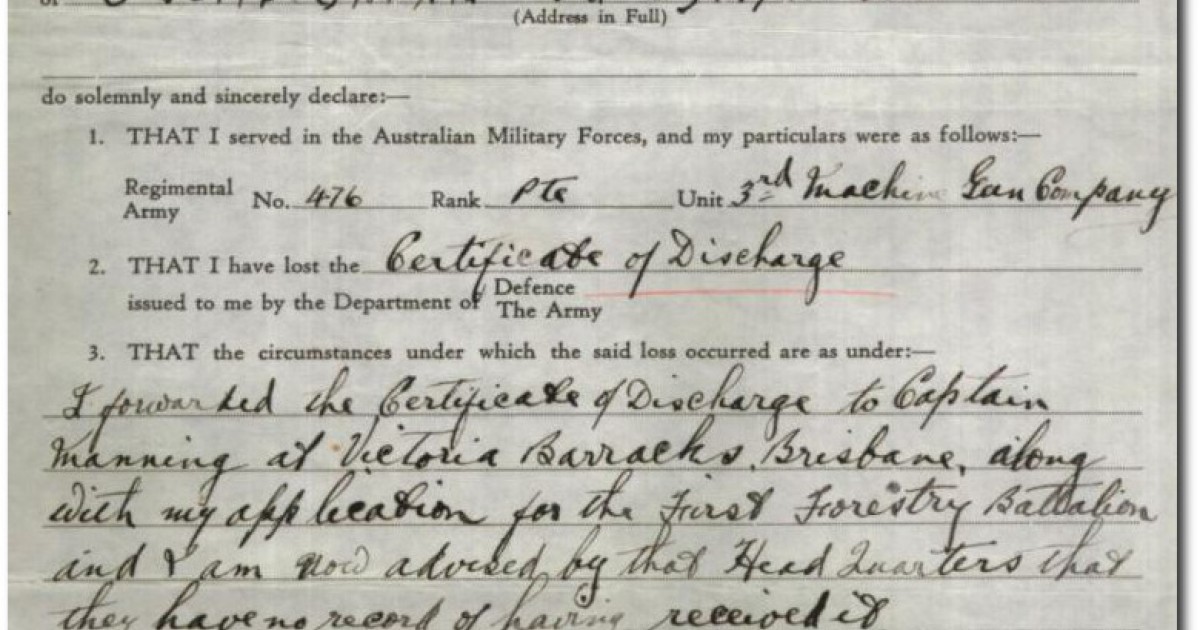 (Address in Full)
do solemnly and sincerely declare:—
1. THAT I served in the Australian Military Forces, and my particulars were as follows:—
Regimental Army No. 476 Rank Pte Unit 3rd Machine Gun Company
2. THAT I have lost the Certificate of Discharge
issued to me by the Department of Defence The Army
3. THAT the circumstances under which the said loss occurred are as under:—
I forwarded the Certificate of Discharge to Captain
Manning at Victoria Barracks, Brisbane, along
with my application for the First Forestry Battalion
and I am now advised by that Head Quarters that
they have no record of having received it